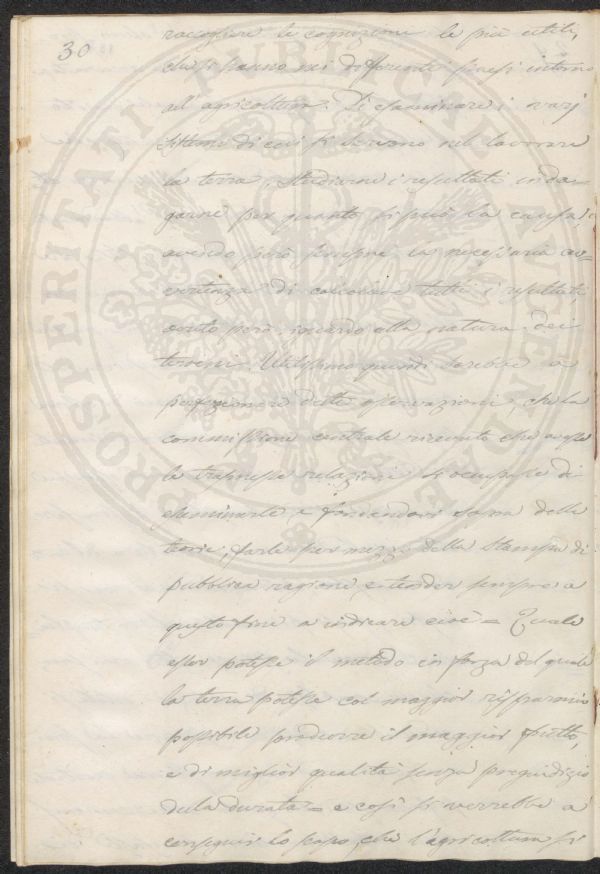 30
raccogliere le cognizioni le più utili,
che si hanno nei differenti paesi intorno
all'agricoltura. Di esaminare i varj
sistemi di cui si servono nel lavorare
la terra, studiarne i resultati inda-
garne per quanto si può la causa,
avendo però sempre la necessaria av-
vertenza di calcolare tutti i resultati
avuto però riguardo alla natura dei
terreni. Utilissimo quindi sarebbe a
perfezionare dette osservazioni, che la
commissione centrale ricevute che avesse
le trasmesse relazioni si occupasse di
esaminarle e fondandosi sopra delle
teorie, farle per mezzo della Stampa di
pubblica ragione e tender sempre a
questo fine a indicare cioè = Quale
esser potesse il metodo in forza del quale
la terra potesse col maggior risparmio
possibile produrre il maggior frutto,
e di miglior qualità senza pregiudizio
della durata = e così si verrebbe a
conseguir lo scopo, che l'agricoltura si
PROSPERITATI PUBLICAE AUGENDAE